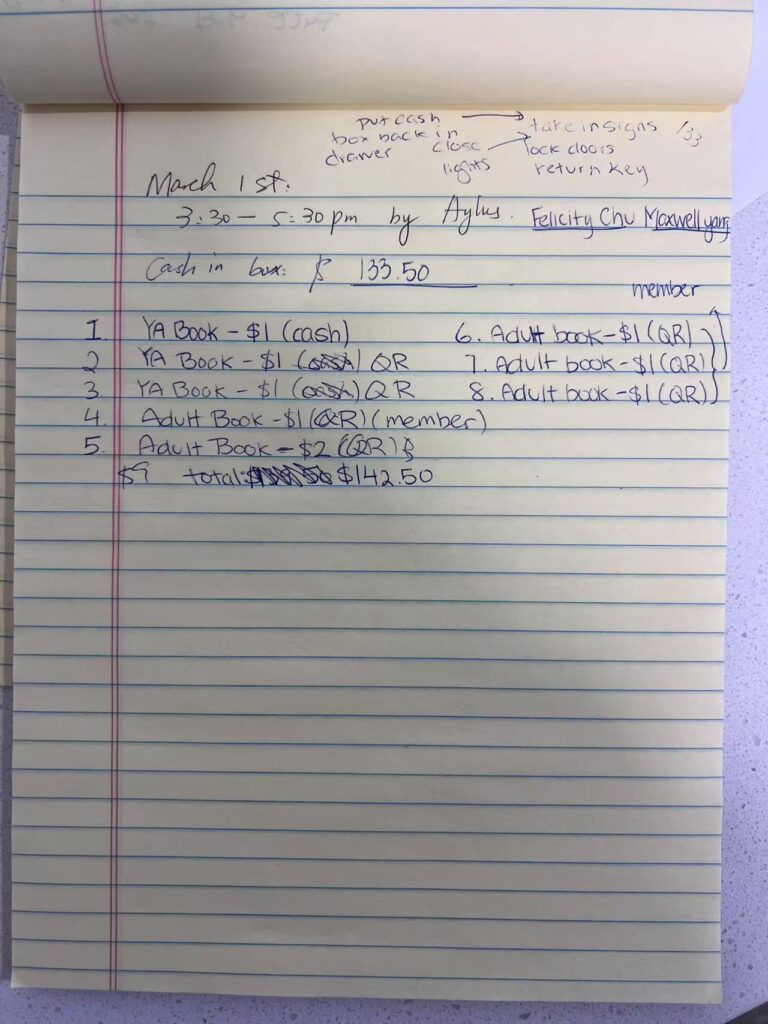 put cash → take in signs 133
box back in close lock doors
drawer lights return key
March 1st.
3:30 – 5:30pm by Aylus. Felicity Chu Maxwell yang
Cash in box: $ 133.50
member
1. YA Book - $1 (cash) 6. Adult book - $1 (QR)
2 YA Book - $1 (cash) QR 7. Adult book - $1 (QR)
3 YA Book - $1 (cash) QR 8. Adult book - $1 (QR)
4. Adult Book - $1 (QR) (member)
5. Adult Book - $2 (QR)
$9 total: $142.50